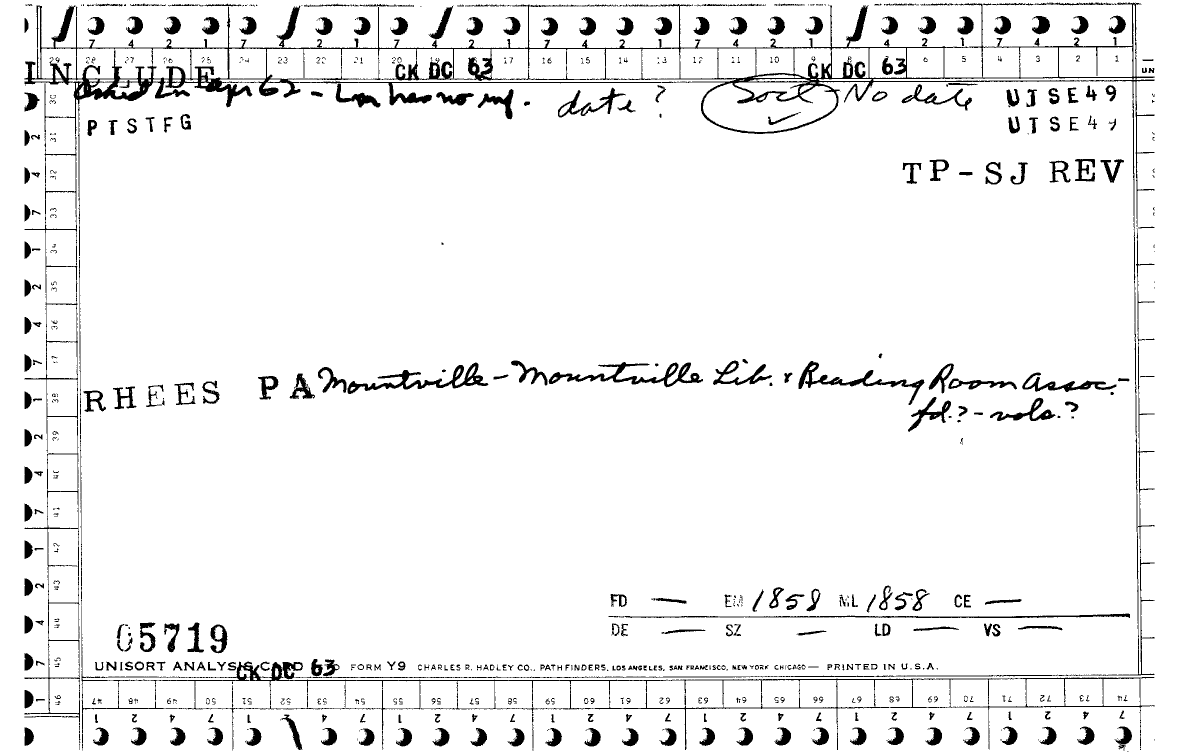 7 4 2 1 7 4 2 1 7 4 2 1 7 4 2 1 7 4 2 1 7 4 2 1 7 4 2 1
28 27 26 25 24 23 22 21 20 19 18 17 16 15 14 13 12 11 10 9 8 7 6 5 4 3 2 1
INCLUDE CK DC 63 CK DC 63
Apr 62 - Lib has no inf. date? Soct - No date UTSE49
PTSTFG UTSE49
TP-SJ REV
RHEES PA Mountville - Mountville Lib. & Reading Room Assoc. -
fd.? - vols.?
FD — EM 1858 ML 1858 CE —
DE — SZ — LD — VS —
05719
UNISORT ANALYSIS CARD FORM Y9 CHARLES R. HADLEY CO., PATHFINDERS, LOS ANGELES, SAN FRANCISCO, NEW YORK CHICAGO — PRINTED IN U.S.A.
CK DC 63
47 48 49 50 51 52 53 54 55 56 57 58 59 60 61 62 63 64 65 66 67 68 69 70 71 72 73 74
1 2 4 7 1 2 4 7 1 2 4 7 1 2 4 7 1 2 4 7 1 2 4 7 1 2 4 7